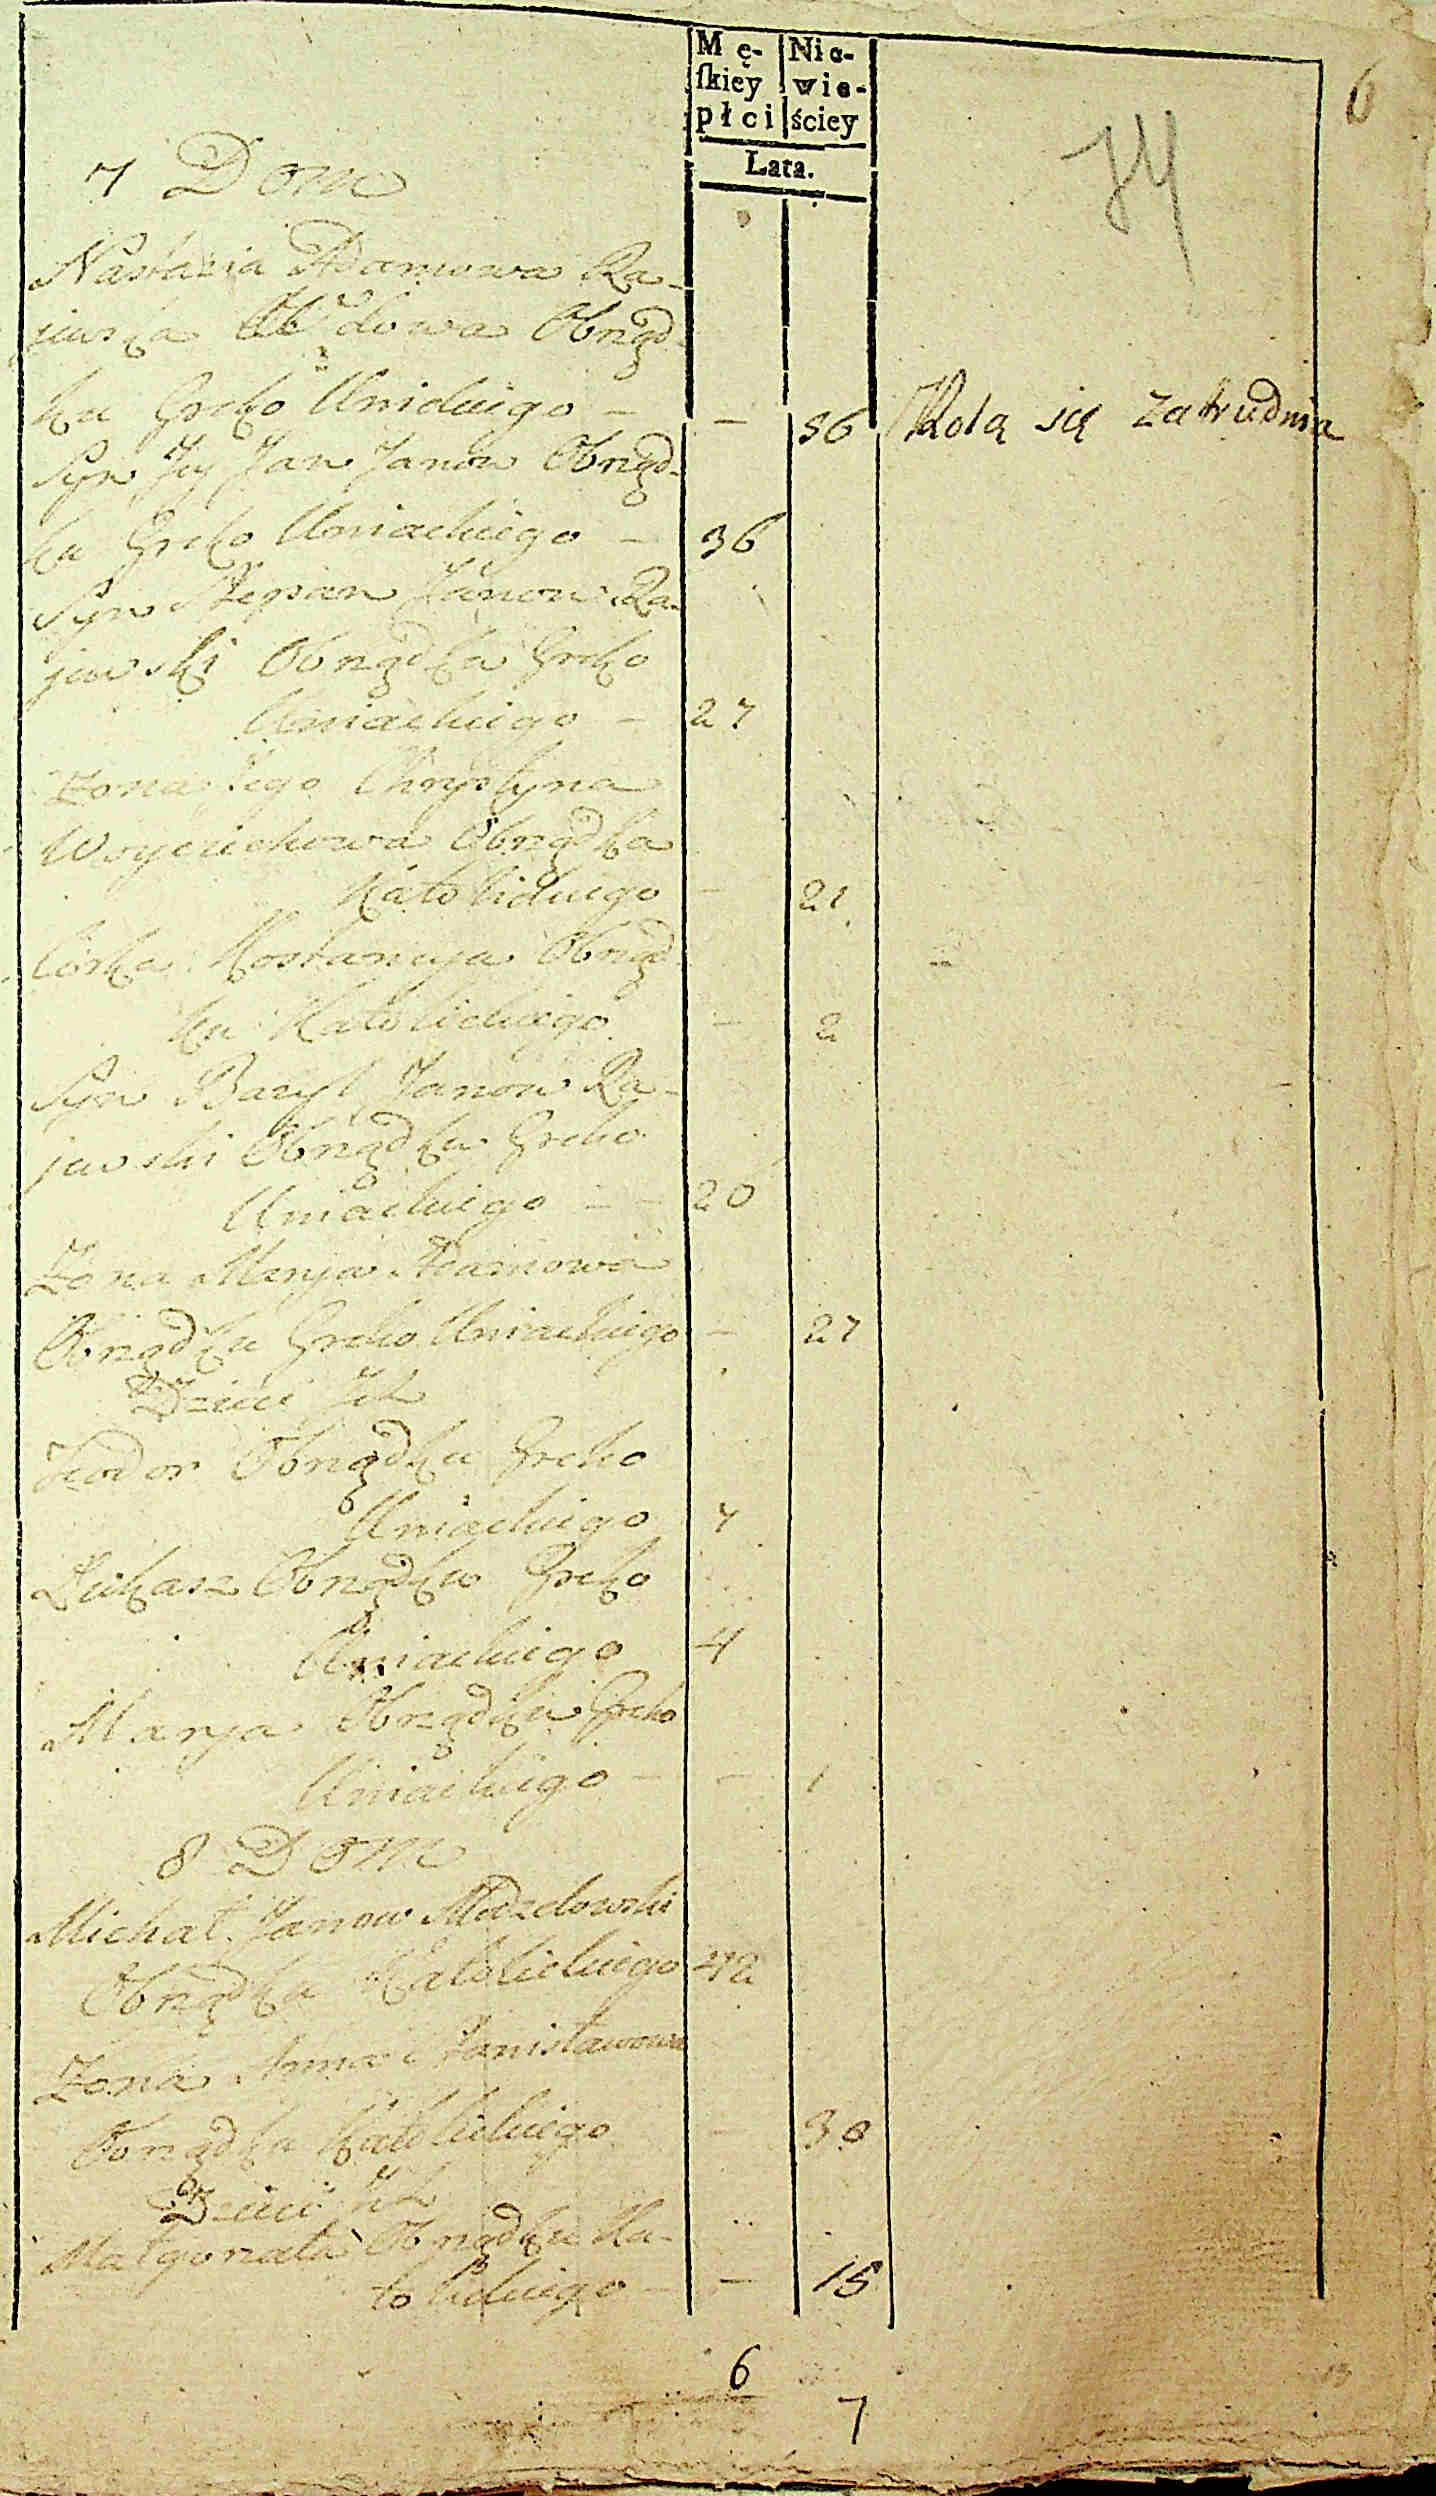 Mę- Nie-
skiey wie-
płci ściey
Lata.
6
74
7 Dom
Nastazia Adamowa Ra-
jewska Wdowa Obrząd-
ku Greko Unickiego – – 56 Rolą się zatrudnia
Syn Jey Jan Janów Obrząd-
ku Greko Uniackiego – 36
Syn Stepan Janow Ra-
jewski Obrządku Greko
Uniackiego – 27
Zona Jego Chrystyna
Woyciechowa Obrządku
Katolickiego – 21
Córka Kostancyja Obrząd
ku Katolickiego – 2
Syn Bazyl Janow Ra-
jewski Obrządku Greko
Uniackiego – – 20
Zona Marja Adamowa
Obrządku Greko Uniackiego – 27
Dzieci Ich
Teodor Obrządku Greko
Uniackiego 7
Łukasz Obrządku Greko
Uniackiego 4
Marja Obrządku Greko
Uniackiego – – 1
8 Dom
Michał Janow
Obrządku Katolickiego 42
Zona Anna Stanisławowa
Obrządku Katolickiego – 30
Dzieci Ich
Małgorzata Obrządku Ka-
tolickiego – – 15
6
7